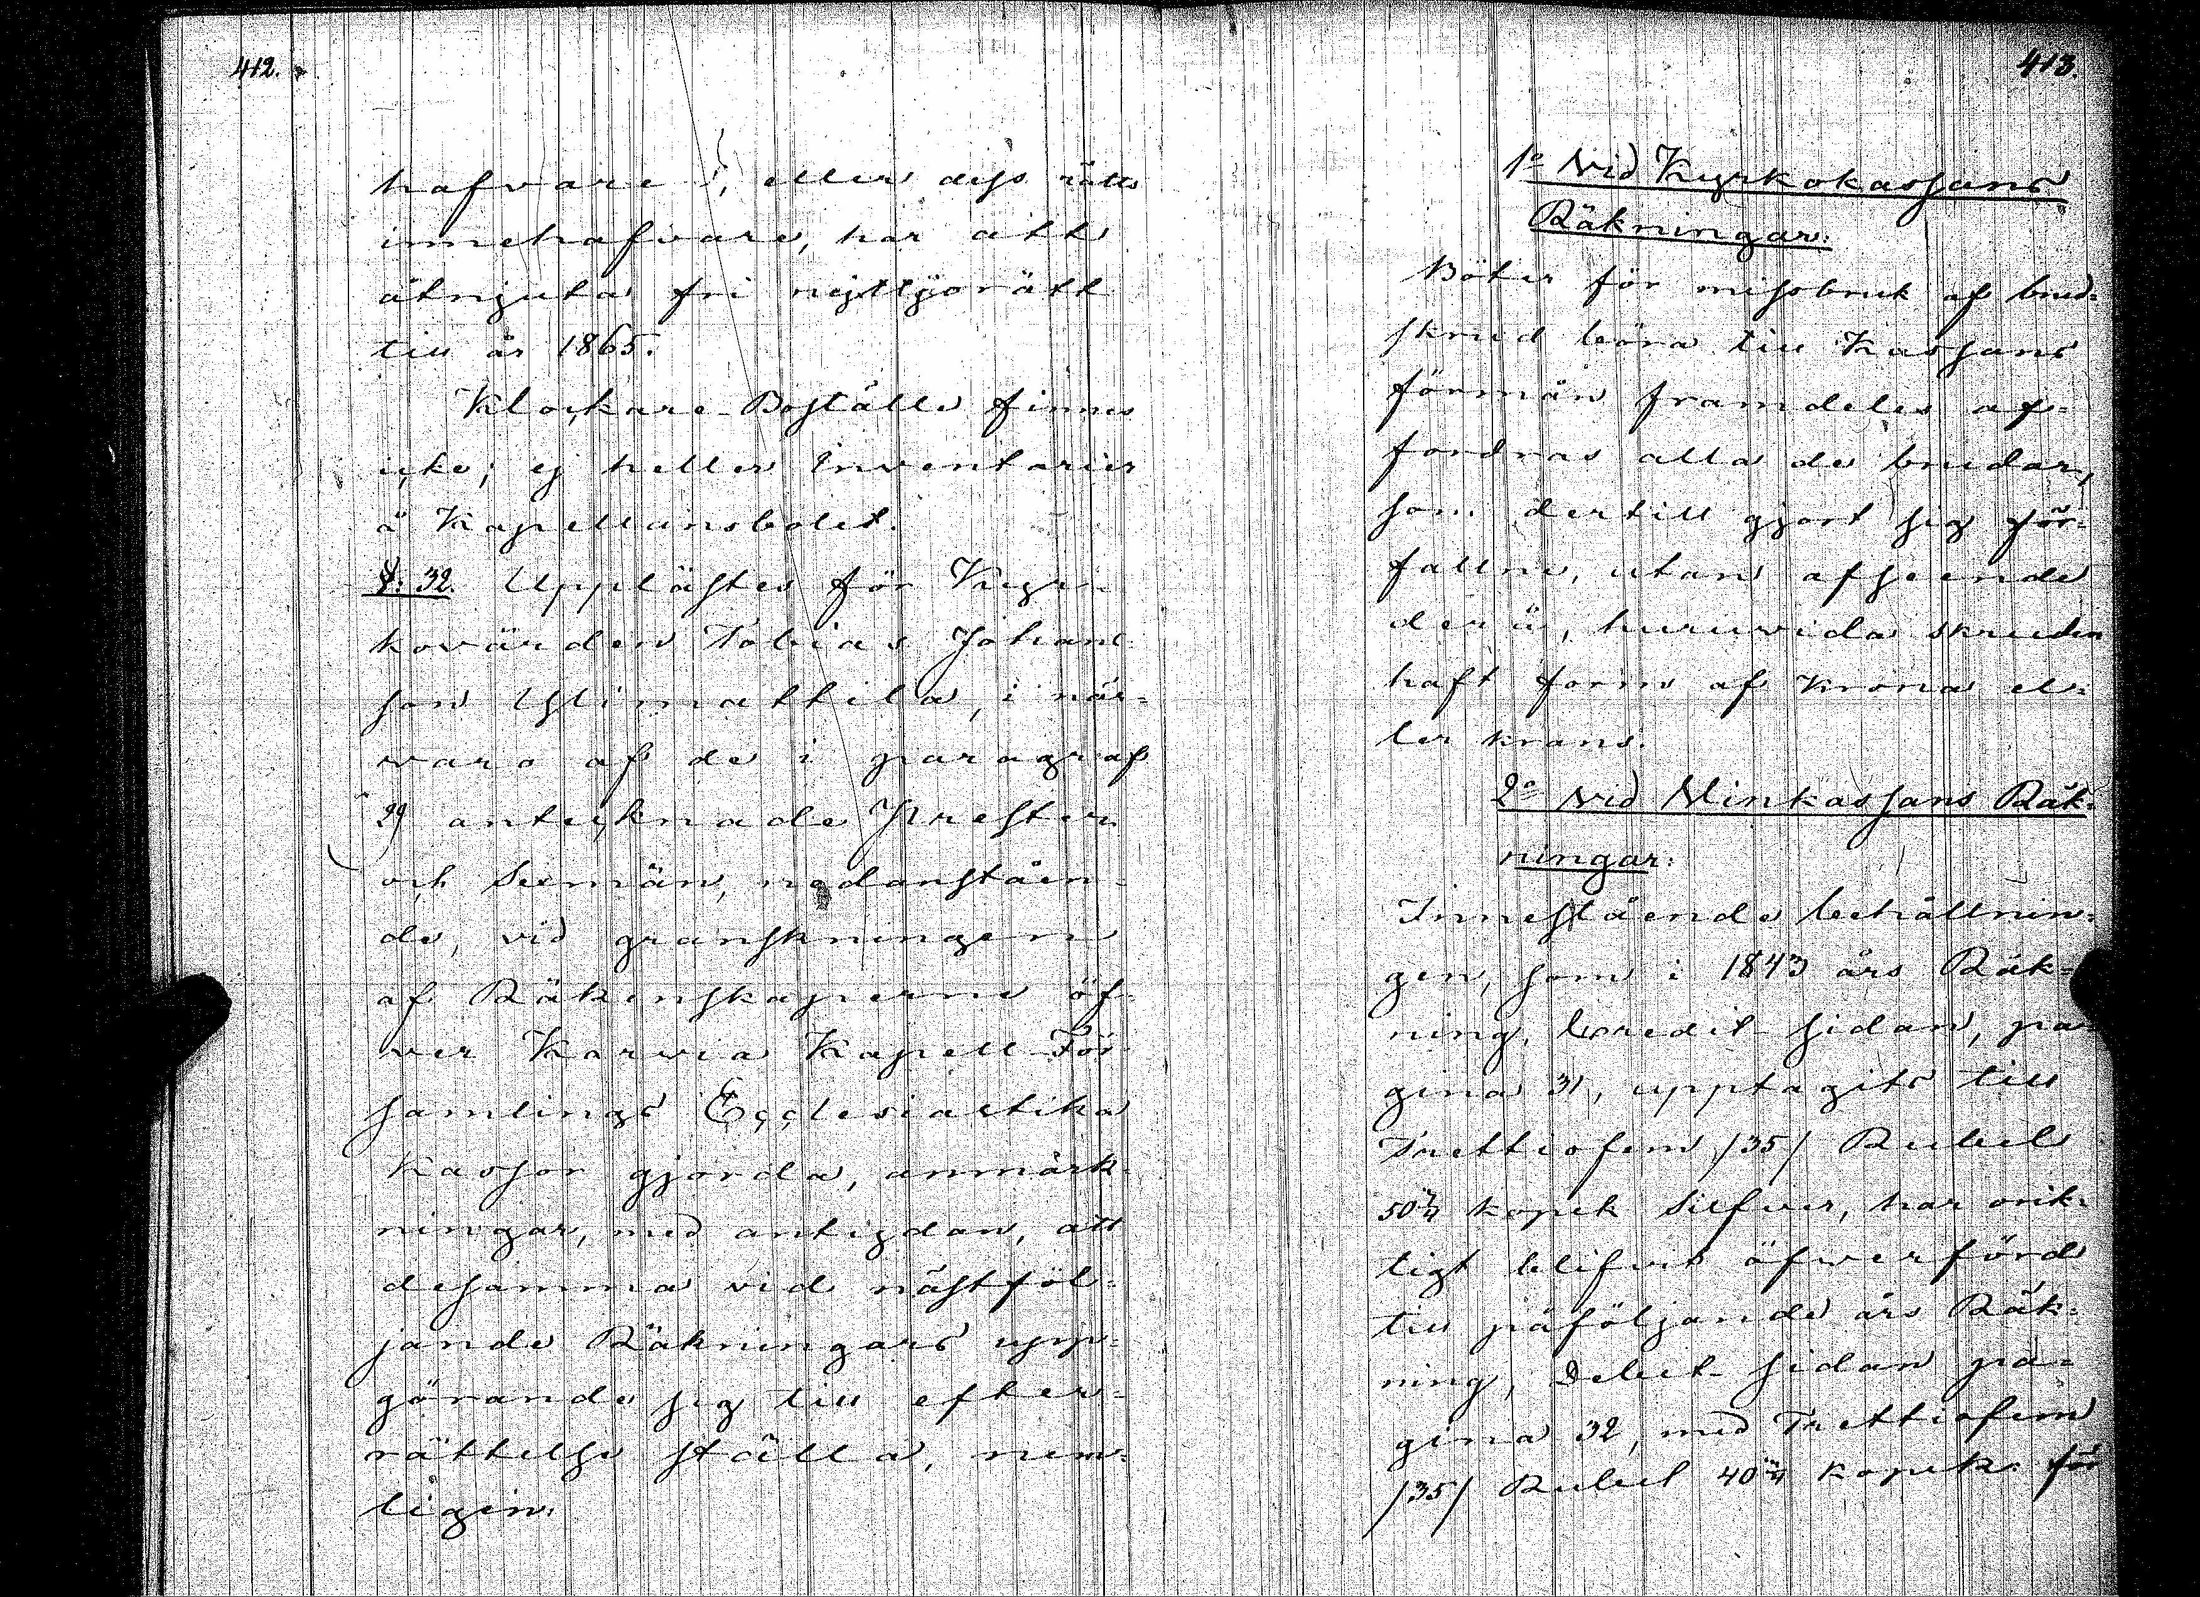 412.
hafvare, eller dess rätts
innehafvare, har att
åtnjuta fri nyttjorätt
till år 1865.
Klockare-Boställe finnes
icke; ej heller Inventarier
å Kapellansbolet.
§: 32. Upplästes för Kyr-
kovärden Tobias Johans-
son Ylimattila, i når-
varo af de i paragraf
29 antecknade Prester
och Sexmän, nedanståen-
de, vid granskningen
af Räkenskaperne öf-
ver Karvia Kapell-För-
samlings Ecclesiastika
Kassor gjorda, anmärk-
ningar, med antydan, att
desamma vid nästföl-
jande Räkningars upp-
görande sig till efter-
rättelse ställa, nem-
ligen:
413.
1o Vid Kyrkokassans
Räkningar:
Böter för missbruk af brud-
skrud böra till Kassans
förmån framdeles af-
fordras alla de brudar,
som dertill gjort sig för-
fallne, utan afseende
derå, huruvida skruden
haft form af Krona el-
ler krans.
2o Vid Vinkassans Räk-
ningar:
Innestående behållnin-
gen, som i 1843 års Räk-
ning, Credit-sidan, pa-
gina 31, upptagits till
Trettiofem /35/ Rubel
kopek Silfver, har orik-
tigt blifvit öfverförd
till påföljande års Räk-
ning, Debet-sidan pa-
gina 32, med Trettiofem
/35/ Rubel kopek för